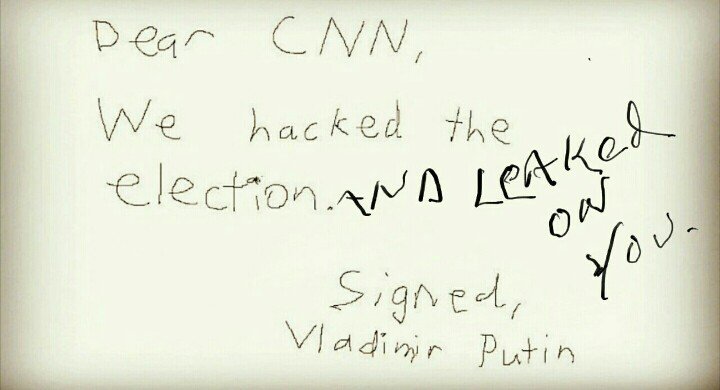 Dear CNN,
We hacked the
election. AND LEAKED
ON
YOU.
Signed,
Vladimir Putin